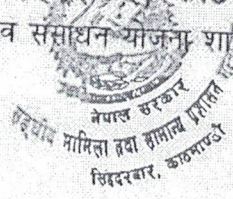 व संसाधन योजना शा
नेपाल सरकार
सङ्घीय मामिला तथा सामान्य प्रशासन
सिंहदरबार, काठमाण्डौ